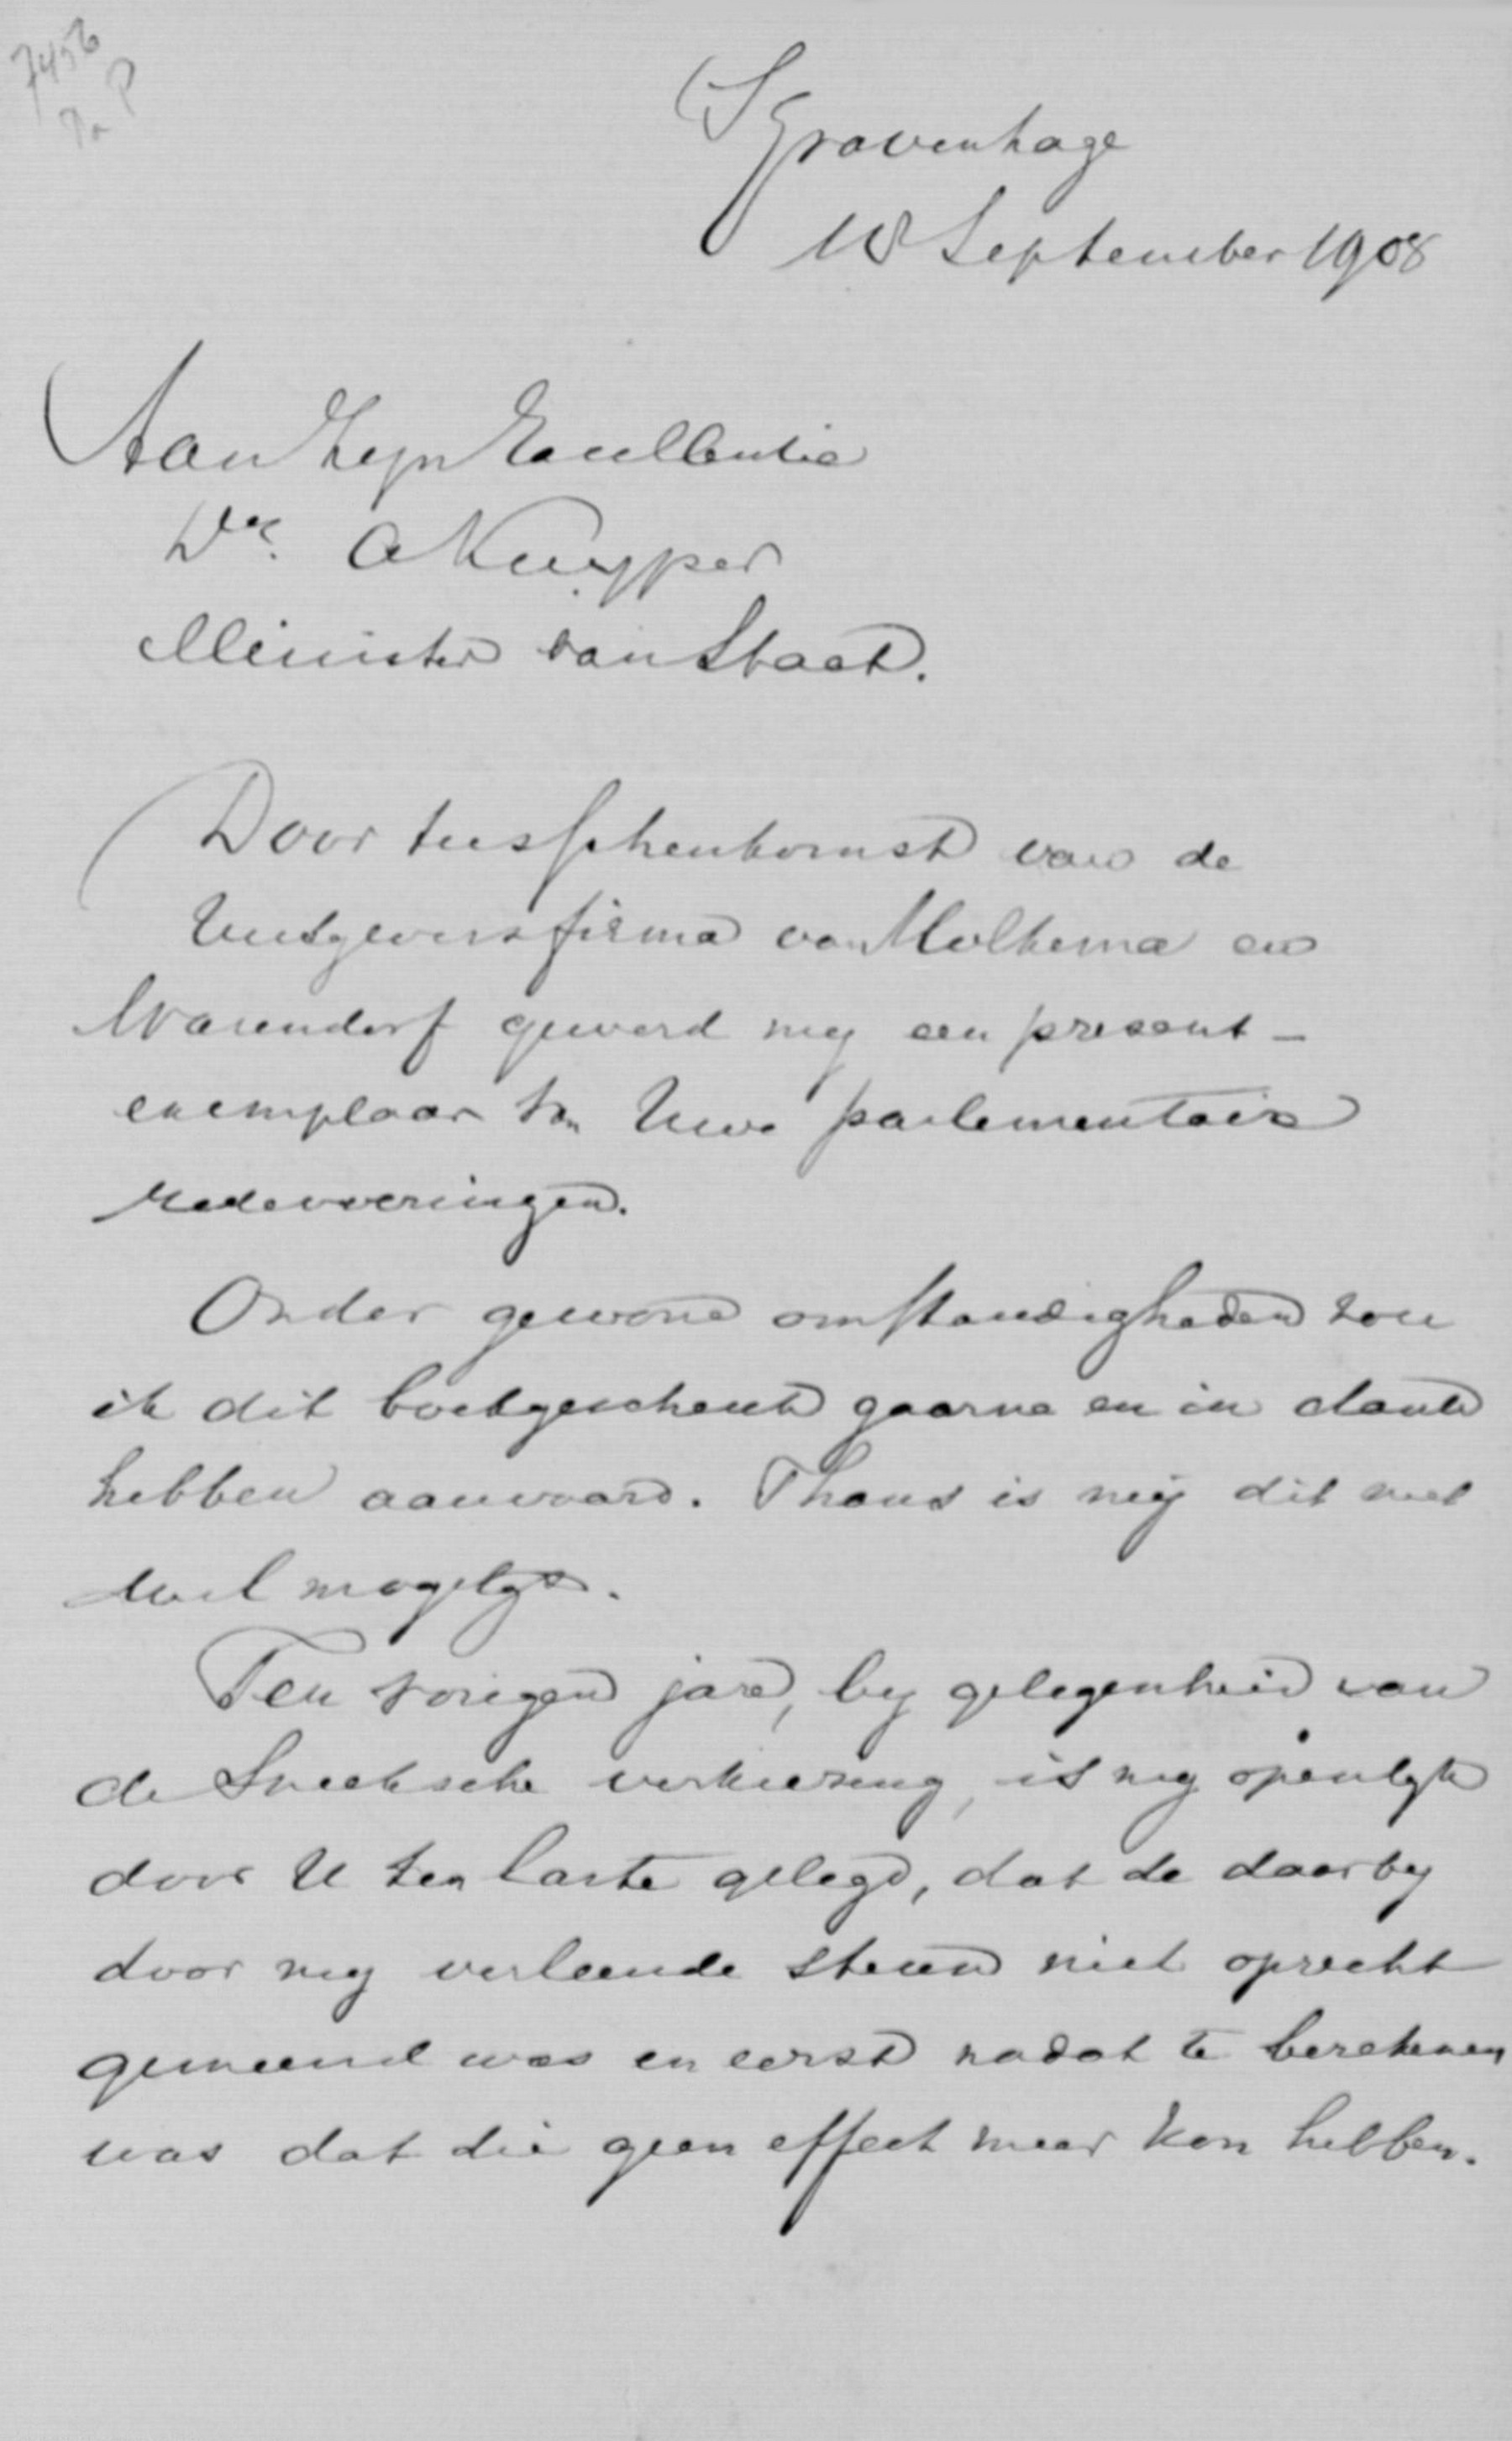 7456
SGravenhage
18 September 1908
Aan Zijn Excellentie
Dr. A Kuyper
Minister van Staat.
Door tusschenkomst van de
Uitgeversfirma van Holkema en
Warendorf gewerd mij een present-
exemplaar van Uwe parlementaire
redevoeringen.
Onder gewone omstandigheden zou
ik dit boekgeschenk gaarne en in dank
hebben aanvaard. Thans is mij dit niet
wel mogelijk.
Ten vorigen jare, bij gelegenheid van
de Sneeksche verkiezing, is mij openlijk
door U ten laste gelegd, dat de daarbij
door mij verleende steun niet oprecht
gemeend was en eerst nadat te berekenen
was dat die geen effect meer kon hebben.